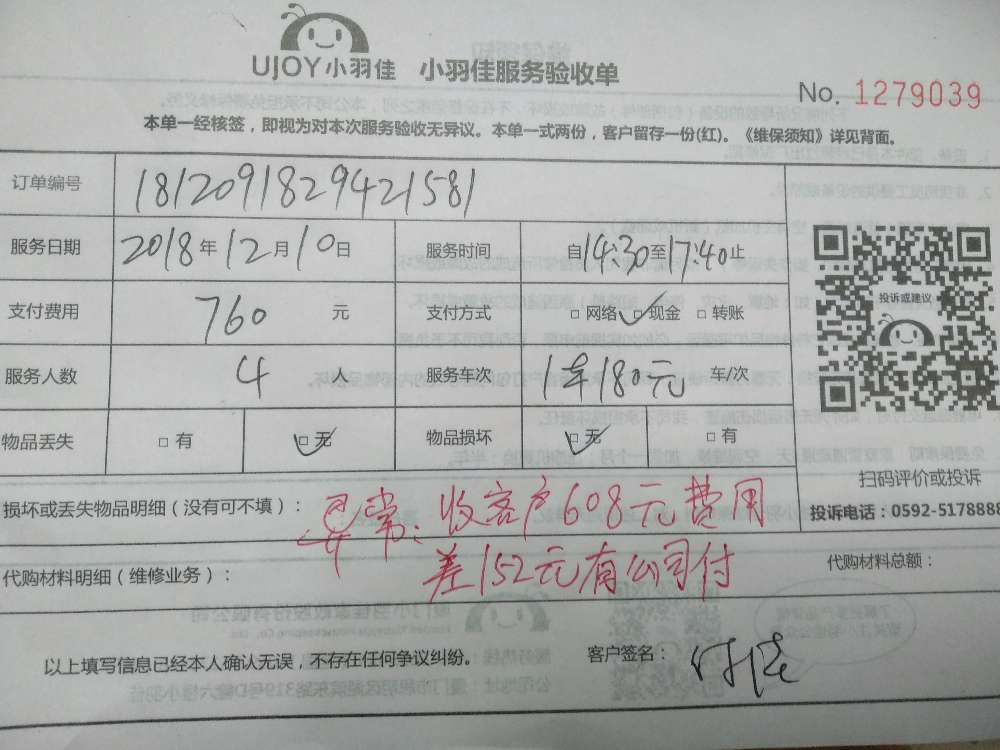 UJOY小羽佳 小羽佳服务验收单
No. 1279039
本单一经核签，即视为对本次服务验收无异议。本单一式两份，客户留存一份(红)。《维保须知》详见背面。
订单编号 1812091829421581
服务日期 2018年12月10日 服务时间 自14:30至17:40止
支付费用 760 元 支付方式 □ 网络 □ 现金 □ 转账
投诉或建议
服务人数 4 人 服务车次 1车180元 车/次
物品丢失 □ 有 □ 无 物品损坏 □ 无 □ 有
扫码评价或投诉
投诉电话：0592-5178888
损坏或丢失物品明细（没有可不填）： 异常：收客户608元费用
差152元有公司付
代购材料明细（维修业务）： 代购材料总额：
以上填写信息已经本人确认无误，不存在任何争议纠纷。 客户签名：